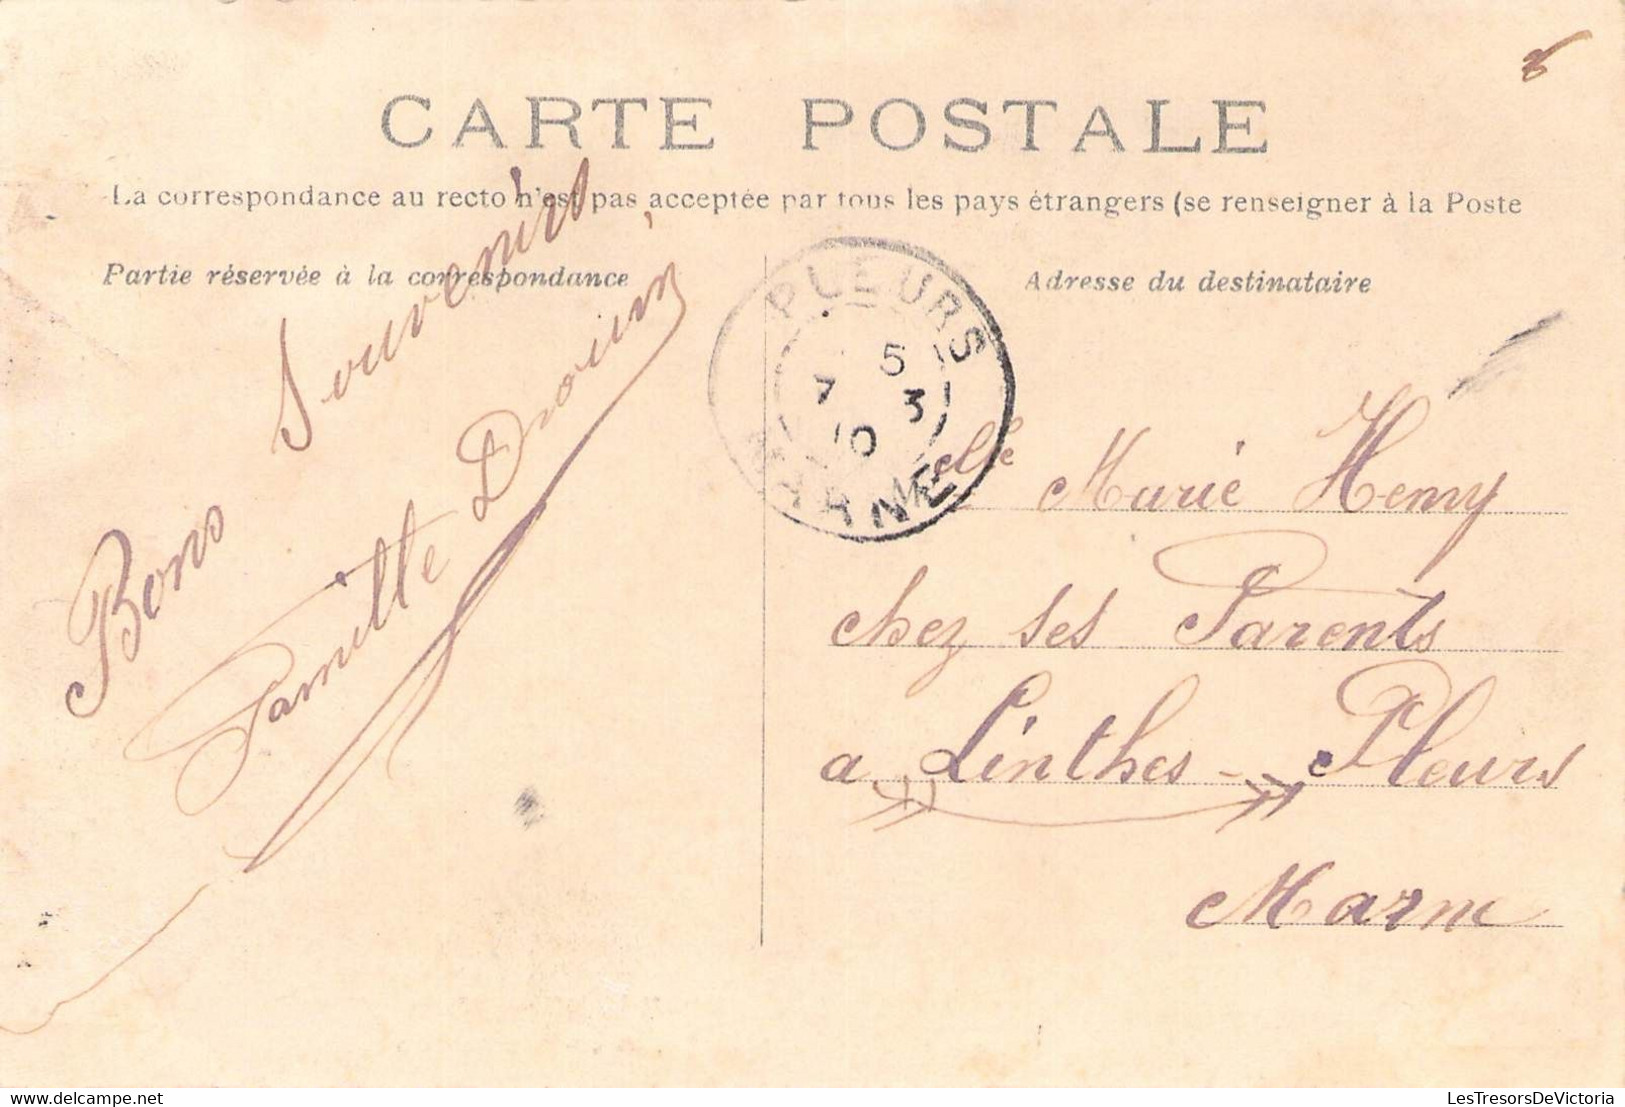 8
CARTE POSTALE
La correspondance au recto n'est pas acceptée par tous les pays étrangers (se renseigner à la Poste
Partie réservée à la correspondance
Adresse du destinataire
Bons Souvenirs
Famille Drouin
PLEURS
5
7 3
10
MARNE
Melle Marie Henry
chez ses Parents
a Linthes - Pleurs
Marne
www.delcampe.net
LesTresorsDeVictoria